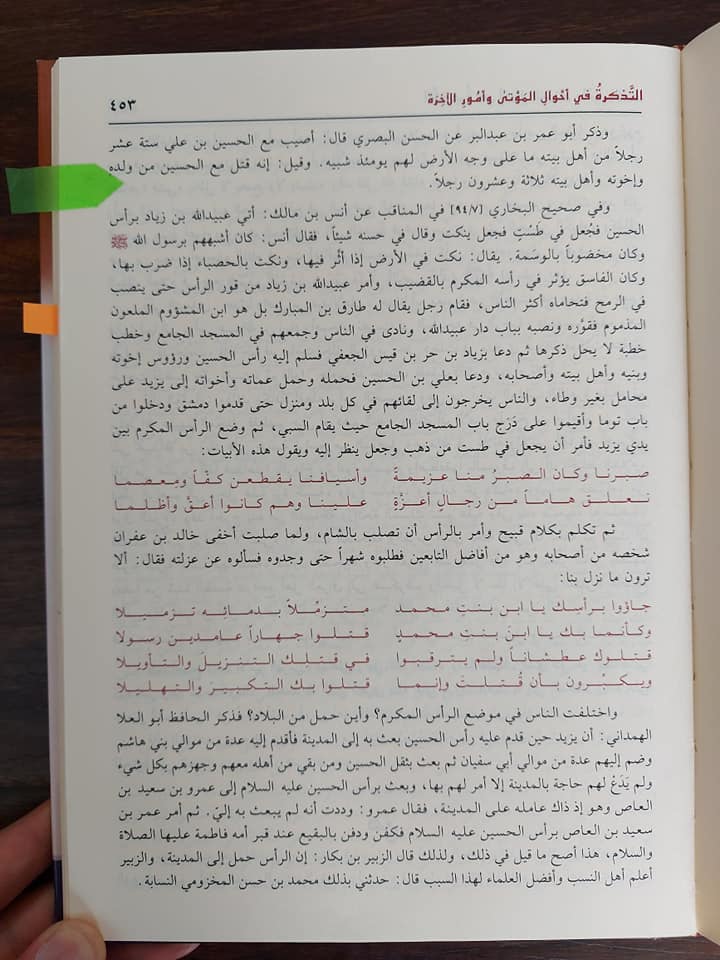 التَّذكرةُ في أحْوالِ المَوْتىٰ وأمُورِ الآخِرَة
٤٥٣
وذكر أبو عمر بن عبدالبر عن الحسن البصري قال: أصيب مع الحسين بن علي ستة عشر
رجلاً من أهل بيته ما على وجه الأرض لهم يومئذ شبيه. وقيل: إنه قتل مع الحسين من ولده
وإخوته وأهل بيته ثلاثة وعشرون رجلاً.
وفي صحيح البخاري [٩٤/٧] في المناقب عن أنس بن مالك: أتي عبيدالله بن زياد برأس
الحسين فجُعل في طَسْتٍ فجعل ينكت وقال في حسنه شيئاً، فقال أنس: كان أشبههم برسول الله ﷺ
وكان مخضوباً بالوسَمة. يقال: نكت في الأرض إذا أثَّر فيها، ونكت بالحصباء إذا ضرب بها،
وكان الفاسق يؤثر في رأسه المكرم بالقضيب، وأمر عبيدالله بن زياد من قور الرأس حتى ينصب
في الرمح فتحاماه أكثر الناس، فقام رجل يقال له طارق بن المبارك بل هو ابن المشؤوم الملعون
المذموم فقوَّره ونصبه بباب دار عبيدالله، ونادى في الناس وجمعهم في المسجد الجامع وخطب
خطبة لا يحل ذكرها ثم دعا بزياد بن حر بن قيس الجعفي فسلم إليه رأس الحسين ورؤوس إخوته
وبنيه وأهل بيته وأصحابه، ودعا بعلي بن الحسين فحمله وحمل عماته وأخواته إلى يزيد على
محامل بغير وطاء، والناس يخرجون إلى لقائهم في كل بلد ومنزل حتى قدموا دمشق ودخلوا من
باب توما وأقيموا على دَرَج باب المسجد الجامع حيث يقام السبي، ثم وضع الرأس المكرم بين
يدي يزيد فأمر أن يجعل في طست من ذهب وجعل ينظر إليه ويقول هذه الأبيات:
صبرنا وكان الصبرُ منا عزيمةً وأسيافنا يقطعن كفّاً ومِعصما
نعلق هاماً من رجالٍ أعزَّةٍ علينا وهم كانوا أعقَّ وأظلما
ثم تكلم بكلام قبيح وأمر بالرأس أن تصلب بالشام، ولما صلبت أخفى خالد بن عفران
شخصه من أصحابه وهو من أفاضل التابعين فطلبوه شهراً حتى وجدوه فسألوه عن عزلته فقال: ألا
ترون ما نزل بنا:
جاؤوا برأسك يا ابن بنتِ محمد متزمِّلاً بدمائِه تزميلا
وكأنما بك يا ابنَ بنتِ محمدٍ قتلوا جهاراً عامدين رسولا
قتلوك عطشاناً ولم يترقبوا في قتلِك التنزيلَ والتأويلا
ويكبِّرون بأن قُتلتَ وإنما قتلوا بك التكبيرَ والتهليلا
واختلفت الناس في موضع الرأس المكرم؟ وأين حمل من البلاد؟ فذكر الحافظ أبو العلا
الهمداني: أن يزيد حين قدم عليه رأس الحسين بعث به إلى المدينة فأقدم إليه عدة من موالي بني هاشم
وضم إليهم عدة من موالي أبي سفيان ثم بعث بثقل الحسين ومن بقي من أهله معهم وجهزهم بكل شيء
ولم يَدَعْ لهم حاجة بالمدينة إلا أمر لهم بها، وبعث برأس الحسين عليه السلام إلى عمرو بن سعيد بن
العاص وهو إذ ذاك عامله على المدينة، فقال عمرو: وددت أنه لم يبعث به إليّ. ثم أمر عمر بن
سعيد بن العاص برأس الحسين عليه السلام فكفن ودفن بالبقيع عند قبر أمه فاطمة عليها الصلاة
والسلام، هذا أصح ما قيل في ذلك، ولذلك قال الزبير بن بكار: إن الرأس حمل إلى المدينة، والزبير
أعلم أهل النسب وأفضل العلماء لهذا السبب قال: حدثني بذلك محمد بن حسن المخزومي النسابة.